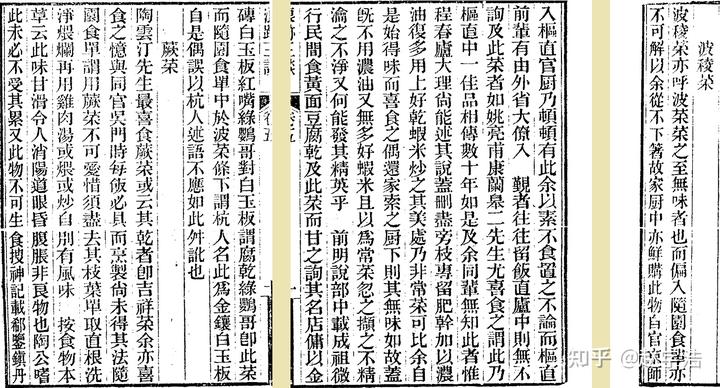 波稜菜
波稜菜亦呼波菜菜之至無味者也而偏入隨園食單亦
不可解以余從不下箸故家厨中亦鮮購此物自官京師
入樞直官厨乃頓頓有此余以素不食置之不論而樞直
前輩有由外省大僚入 覲者往往留飯直廬中則無不
詢及此菜者如姚亮甫康蘭皋二先生尤喜食之謂此乃
樞直中一佳品相傳數十年如是及余同輩無知此者惟
程春廬大理尚能述其說蓋刪盡旁枝專留肥幹加以濃
油復多用上好乾蝦米炒之其美處乃非常菜可比余自
是始得味而喜食之偶還家索之厨下則其無味如故蓋
旣不用濃油又無多好蝦米且以爲常菜忽之擷之不精
瀹之不淨又何能發其精英乎 前明說部中載成祖微
行民間食黃面豆腐乾及此菜而甘之詢其名店傭以金
磚白玉板紅嘴綠鸚哥對白玉板謂腐乾綠鸚哥卽此菜
而隨園食單中於波菜條下謂杭人名此爲金鑲白玉板
自是偶誤以杭人述語不應如此舛訛也
蕨菜
陶雲汀先生最喜食蕨菜或云其乾者卽吉祥菜余亦喜
食之憶與同官吳門時每飯必具而烹製尚未得其法隨
園食單謂用蕨菜不可愛惜須盡去其枝葉單取直根洗
淨煨爛再用雞肉湯或煨或炒自別有風味 按食物本
草云此味甘滑令人消陽道眼昏腹脹非良物也陶公嗜
此未必不受其累又此物不可生食搜神記載郗鑒鎮丹
知乎